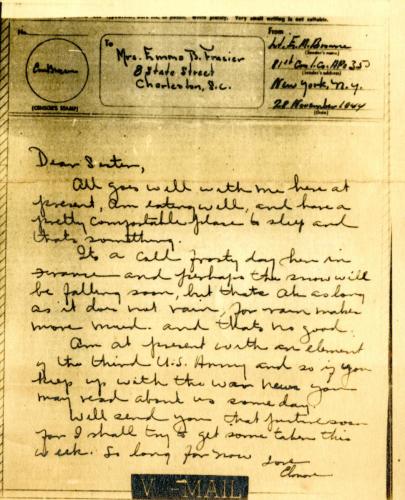 Very small writing is not suitable.
No.
To
From
Mrs. Emma B. Frasier
8 State Street
Charleston, S.C.
(CENSOR'S STAMP)
Lt. E. A. Browne
(Sender's name)
81st Co. APO 350
(Sender's address)
New York, N.Y.
28 November 1944
(Date)
Dear Sister,
All goes well with me here at
present, am eating well, and have a
pretty comfortable place to sleep and
thats something.
Its a cold frosty day here in
France and perhaps the snow will
be falling soon, but thats ok as long
as it does not rain, for rain makes
more mud. and thats no good.
Am at present with an element
of the third U.S. Army and so if you
keep up with the war news you
may read about us some day.
Will send you that picture soon
for I shall try to get some taken this
week. So long for now
Love
V-MAIL